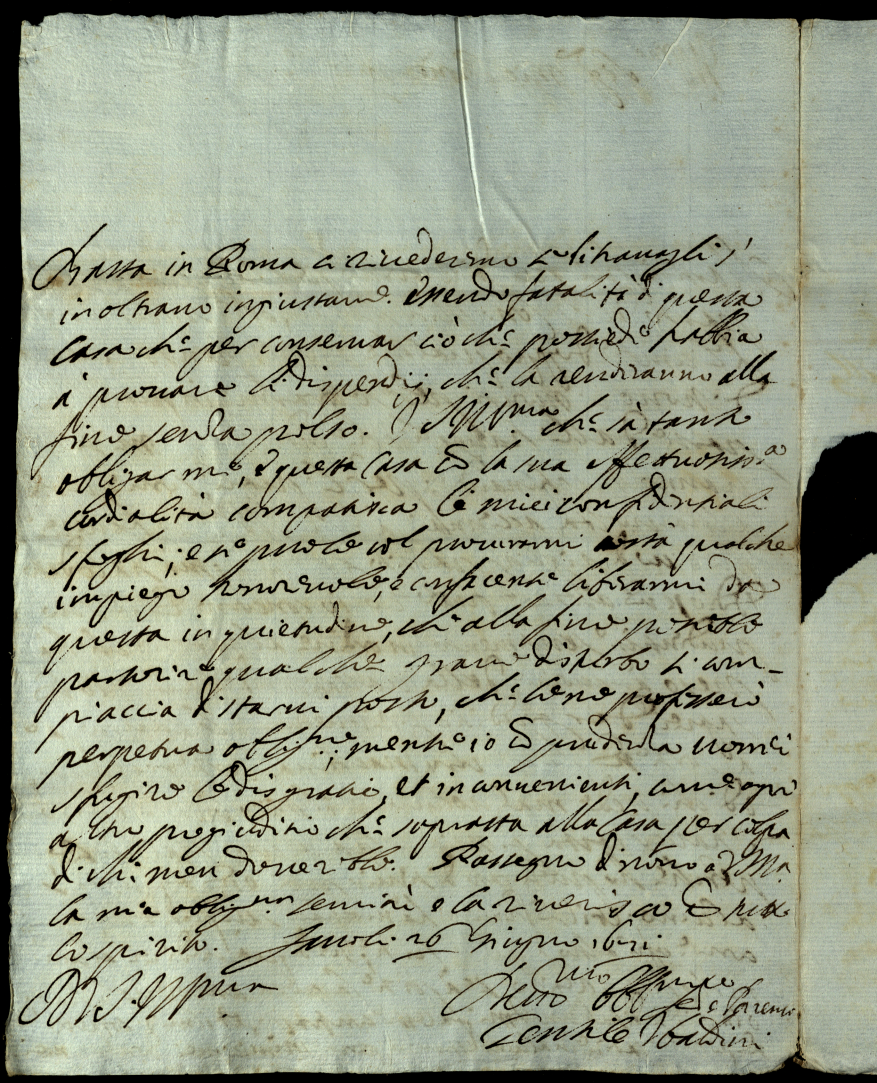 in Roma ci rivederemo e li travagli s'
inoltrano ingiustam.e essendo fatalità di questa
Casa ch.e per conservar ciò ch.e possiede habbia
à provare li dispendij, ch.e la renderanno alla
fine senza polso. V. S. Ill.ma ch.e sà tanto
obligar me, e questa Casa con la sua affettuosiss.a
cordialità compatisca li miei confidentiali
sfoghi; e se puole col procurarmi costà qualche
impiego honorevole, e confacente liberarmi da
questa inquietudine, ch.e alla fine potrebbe
partorire qualche grave disturbo si com-
piaccia di starvi, ch.e le ne professerò
perpetua oblig.ne; mentre io con prudenza vorrei
sfugire le disgratie, et inconvenienti, come ogni
altro pregiuditio ch.e soprasta alla Casa per colpa
di chi men dovrebbe. Rassegno di novo a V. S. Ill.ma
la mia oblig.ma servitù e la riverisco con tutto
lo spirito. 26 Giugno 1671
D. V. S. Ill.ma
Dev.mo Obblig.mo Ser.e e Parente
Gentile Ubaldini